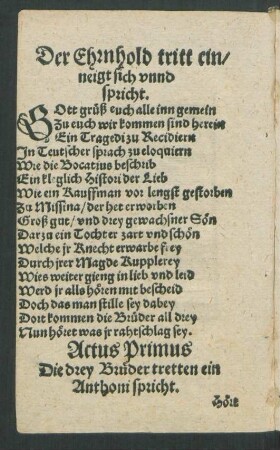 Der Ehrnhold tritt ein/
neigt sich vnnd
spricht.
GOtt grüß euch alle inn gemein
Zu euch wir kommen sind herein
Ein Tragedi zu Recidiern
In Teutscher sprach zu eloquiern
Wie die Bocatius beschrib
Ein kleglich Histori der Lieb
Wie ein Kauffman vor lengst gestorben
Zu Missina/ der het erworben
Groß gut/ vnd drey gewachsner Sön
Darzu ein Tochter zart vnd schön
Welche jr Knecht erwarbe frey
Durch jrer Magde Kupplerey
Wies weiter gieng in lieb vnd leid
Werd jr alls hören mit bescheid
Doch das man stille sey dabey
Dort kommen die Brüder all drey
Nun höret was jr rahtschlag sey.
Actus Primus
Die drey Brüder tretten ein
Anthoni spricht.
Hört